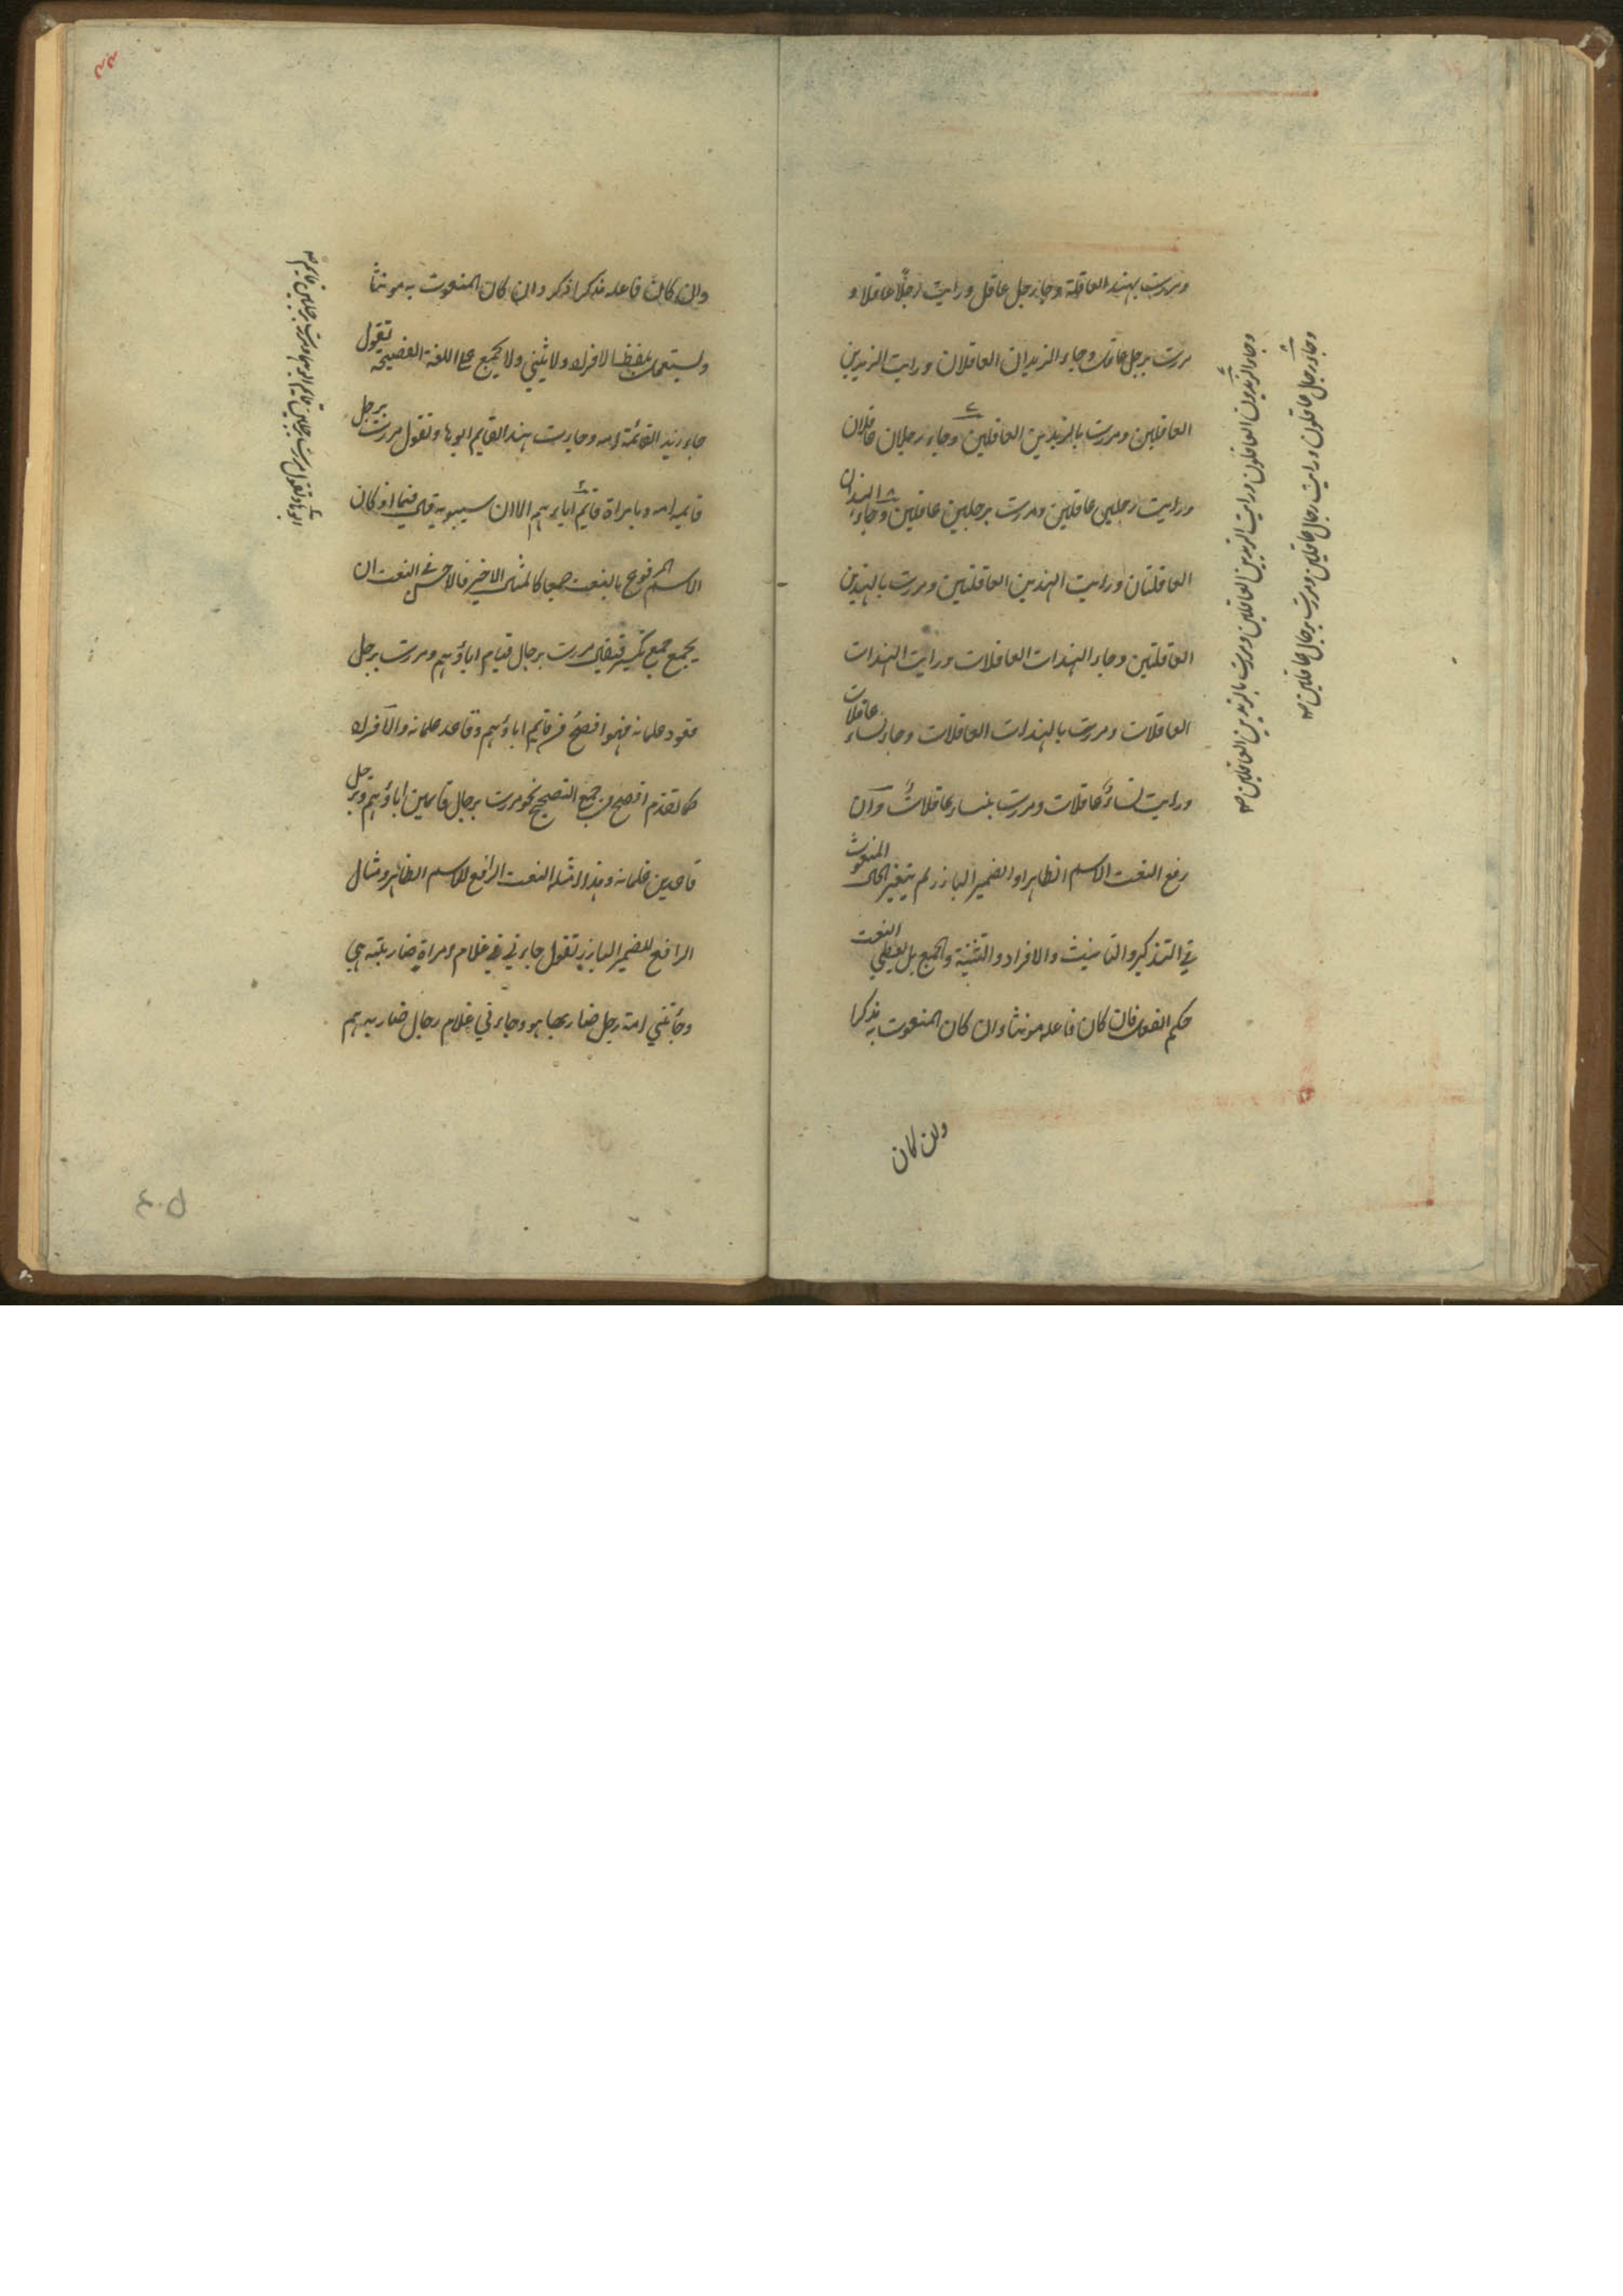 ومررت بهند العاقلة وجاء رجل عاقل ورايت رجلًا عاقلا و
مررت برجل عاقل وجاء الزيدان العاقلان ورايت الزيدين
العاقلين ومررت بالزيدين العاقلين وجاء رجلان عاقلان
ورايت رجلين عاقلين ومررت برجلين عاقلين وجاء الهندان
العاقلتان ورايت الهندين العاقلتين ومررت بالهندين
العاقلتين وجاء الهندات العاقلات ورايت الهندات
العاقلات ومررت بالهندات العاقلات وجاء نساء عاقلات
ورايت نساءً عاقلات ومررت بنساء عاقلات وان
رفع النعت الاسم الظاهر او الضمير البارز لم يتغير حال المنعوت
في التذكير والتانيث والافراد والتثنية والجمع بل يعطي النعت
حكم الفعل فان كان فاعله مونثا وان كان المنعوت به مذكرا
وان كان
وجاء الزيدون العاقلون ورايت الزيدين العاقلين ومررت بالزيدين العاقلين صح
وجاء رجال عاقلون ورايت رجالا عاقلين ومررت برجال عاقلين صح
وان كان فاعله مذكرا ذكر وان كان المنعوت به مونثا
ويستعمل بلفظ الافراد ولا يثني ولا يجمع على اللغة الفصيحة تقول
جاء زيد القائمة امه وجاءت هند القايم ابوها وتقول مررت برجل
قايمة امه وبامراة قايم اباءهم الا ان سيبويه قال فيما اذ كان
الاسم المرفوع بالنعت جمعا كالمثال الاخير فالاحسن في النعت ان
يجمع جمع تكسير فيقال مررت برجال قيام اباؤهم ومررت برجل
قعود غلمانه فهو افصح من قايم اباؤهم وقاعد غلمانه والافراد
كما تقدم افصح من جمع التصحيح نحو مررت برجال قايمين اباؤهم وبرجل
قاعدين غلمانه وهذا امثلة النعت الرافع للاسم الظاهر ومثال
الرافع للضمير البارز تقول جاءني غلام امراة ضاربته هي
وجاءتني امة رجل ضاربها هو وجاءني غلام رجال ضاربه هم